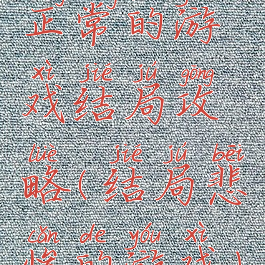 正常的游
xì jié jú gōng
戏结局攻
lüè jié jú bēi
略(结局悲
cǎn de yóu xì
惨的游戏)